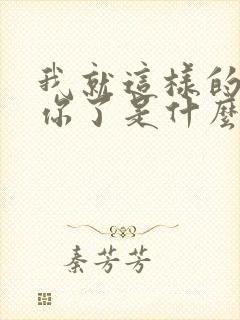 我就這樣的
你了是什麼
秦芳芳